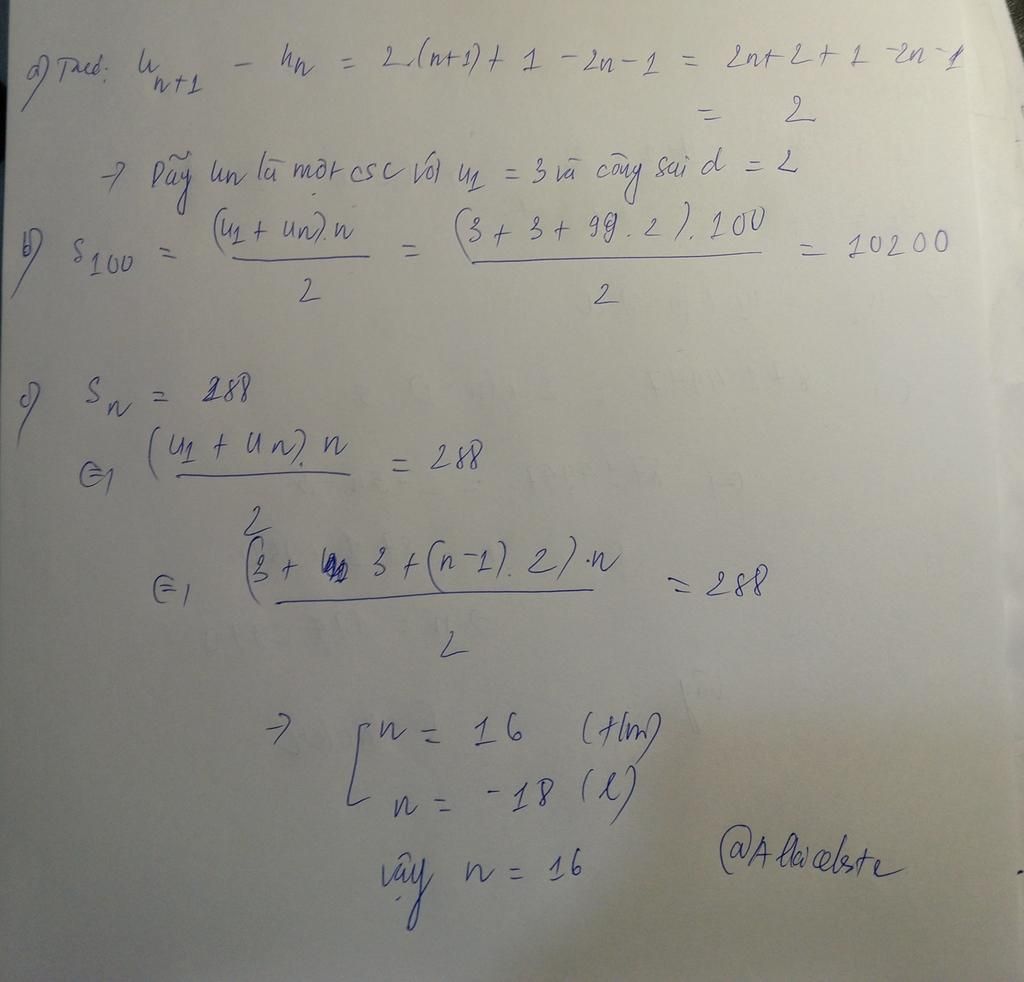 a) Ta có: u_{n+1} - u_n = 2.(n+1) + 1 - 2n - 1 = 2n + 2 + 1 - 2n - 1
= 2
→ Dãy un là một csc với u_1 = 3 và công sai d = 2
b) S_{100} = \frac{(u_1 + u_n).n}{2} = \frac{(3 + 3 + 99.2).100}{2} = 10200
c) S_n = 288
⇔ \frac{(u_1 + u_n).n}{2} = 288
⇔ \frac{(3 + 3 + (n-1).2).n}{2} = 288
→ [ n = 16 (t/m)
n = -18 (l)
vậy n = 16